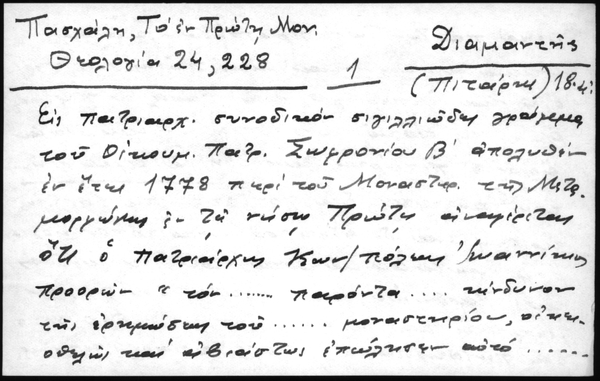 Πασχάλη, Τὸ ἐν Πρώτῃ Μον.
Θεολογία 24, 228
1
Διαμαντής
(Πιτάρης) 18.4.
Εἰς πατριαρχ. συνοδικὸν σιγιλλιῶδες γράμμα
τοῦ Οἰκουμ. Πατρ. Σωφρονίου Β' ἀπολυθὲν
ἐν ἔτει 1778 περὶ τοῦ Μοναστηρ. τῆς Μετα
μορφώσεως ἐν τῇ νήσῳ Πρώτῃ ἀναφέρεται
ὅτι ὁ Πατριάρχης Κων/πόλεως Ἰωαννίκιος
προορῶν "τὸν ....... παρόντα .... κίνδυνον
τῆς ἐρημώσεως τοῦ ...... μοναστηρίου, οἰκει-
οθελῶς καὶ ἀβιάστως ἐπώλησεν αὐτὸ .......